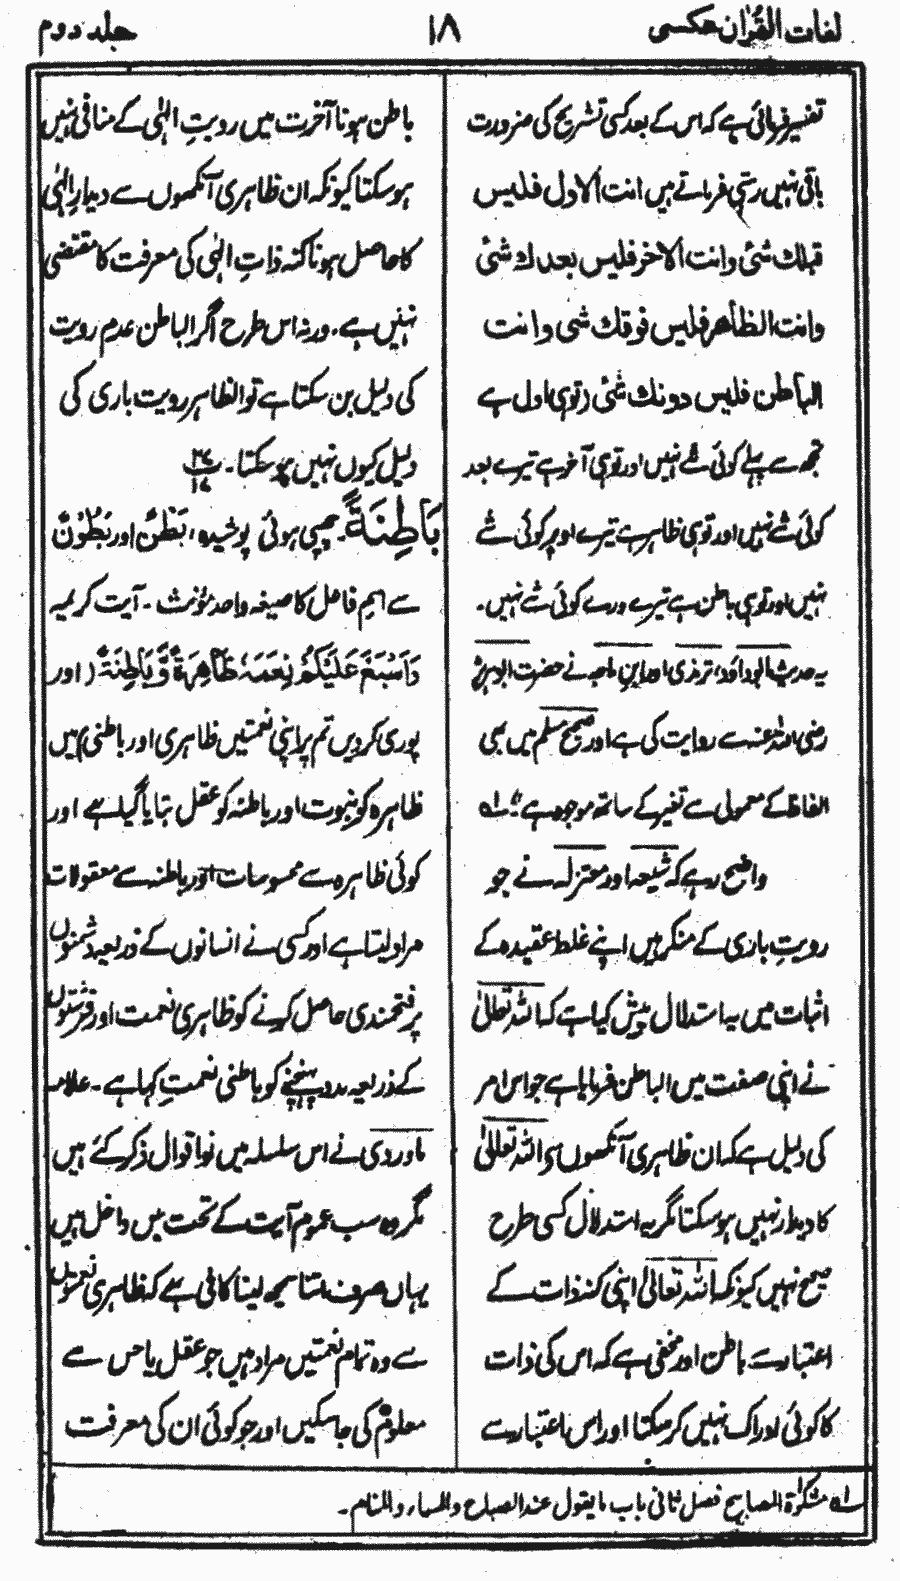 لغات القرآن عکسی
۱۸
جلد دوم
تفسیر فرمائی ہے کہ اس کے بعد کسی تشریح کی ضرورت
باقی نہیں رہتی فرماتے ہیں انت الاول فلیس
قبلك شئ وانت الاخر فلیس بعدك شئ
وانت الظاهر فلیس فوقك شئ وانت
الباطن فلیس دونك شئ (توہی اول ہے
تجھ سے پہلے کوئی شے نہیں اور توہی آخر ہے تیرے بعد
کوئی شے نہیں اور توہی ظاہر ہے تیرے اوپر کوئی شے
نہیں اور توہی باطن ہے تیرے ورے کوئی شے نہیں۔
یہ حدیث ابوداؤد، ترمذی اور ابن ماجہ نے حضرت ابوہریرہ
رضی اللہ عنہ سے روایت کی ہے اور صحیح مسلم میں بھی
الفاظ کے معمولی سے تغیر کے ساتھ موجود ہے
واضح رہے کہ شیعہ اور معتزلہ نے جو
رویتِ باری کے منکر ہیں اپنے غلط عقیدہ کے
اثبات میں یہ استدلال پیش کیا ہے کہ اللہ تعالیٰ
نے اپنی صفت میں الباطن فرمایا ہے جو اس امر
کی دلیل ہے کہ ان ظاہری آنکھوں سے اللہ تعالیٰ
کا دیدار نہیں ہو سکتا مگر یہ استدلال کسی طرح
صحیح نہیں کیونکہ اللہ تعالیٰ اپنی کنہ ذات کے
اعتبار سے باطن اور مخفی ہے کہ اس کی ذات
کا کوئی ادراک نہیں کر سکتا اور اس اعتبار سے
باطن ہونا آخرت میں رویتِ الٰہی کے منافی نہیں
ہو سکتا کیونکہ ان ظاہری آنکھوں سے دیدارِ الٰہی
کا حاصل ہونا کنہ ذاتِ الٰہی کی معرفت کا مقتضی
نہیں ہے۔ ورنہ اس طرح اگر الباطن عدم رویت
کی دلیل بن سکتا ہے تو الظاہر رویت باری کی
دلیل کیوں نہیں ہو سکتا۔
بَاطِنَةً۔ چھپی ہوئی پوشیدہ، بَطْنٌ اور بُطُوْنٌ
سے اسمِ فاعل کا صیغہ واحد مؤنث۔ آیت کریمہ
وَاَسْبَغَ عَلَيْكُمْ نِعَمَهٗ ظَاهِرَةً وَّبَاطِنَةً (اور
پوری کردیں تم پر اپنی نعمتیں ظاہری اور باطنی) میں
ظاہرہ کو نبوت اور باطنہ کو عقل بتایا گیا ہے اور
کوئی ظاہرہ سے محسوسات اور باطنہ سے معقولات
مراد لیتا ہے اور کسی نے انسانوں کے ذریعہ دشمنوں
پر فتحمندی حاصل کرنے کو ظاہری نعمت اور فرشتوں
کے ذریعہ مدد پہنچنے کو باطنی نعمتِ کہا ہے۔ علامہ
ماوردی نے اس سلسلہ میں نو اقوال ذکر کئے ہیں
مگر وہ سب عموم آیت کے تحت میں داخل ہیں
یہاں صرف اتنا سمجھ لینا کافی ہے کہ ظاہری نعمتوں
سے وہ تمام نعمتیں مراد ہیں جو عقل یا حس سے
معلوم کی جا سکیں اور جو کوئی ان کی معرفت
لہ مشکوٰۃ المصابیح فصل ثانی باب ما یقول عند الصباح والمساء والمنام۔